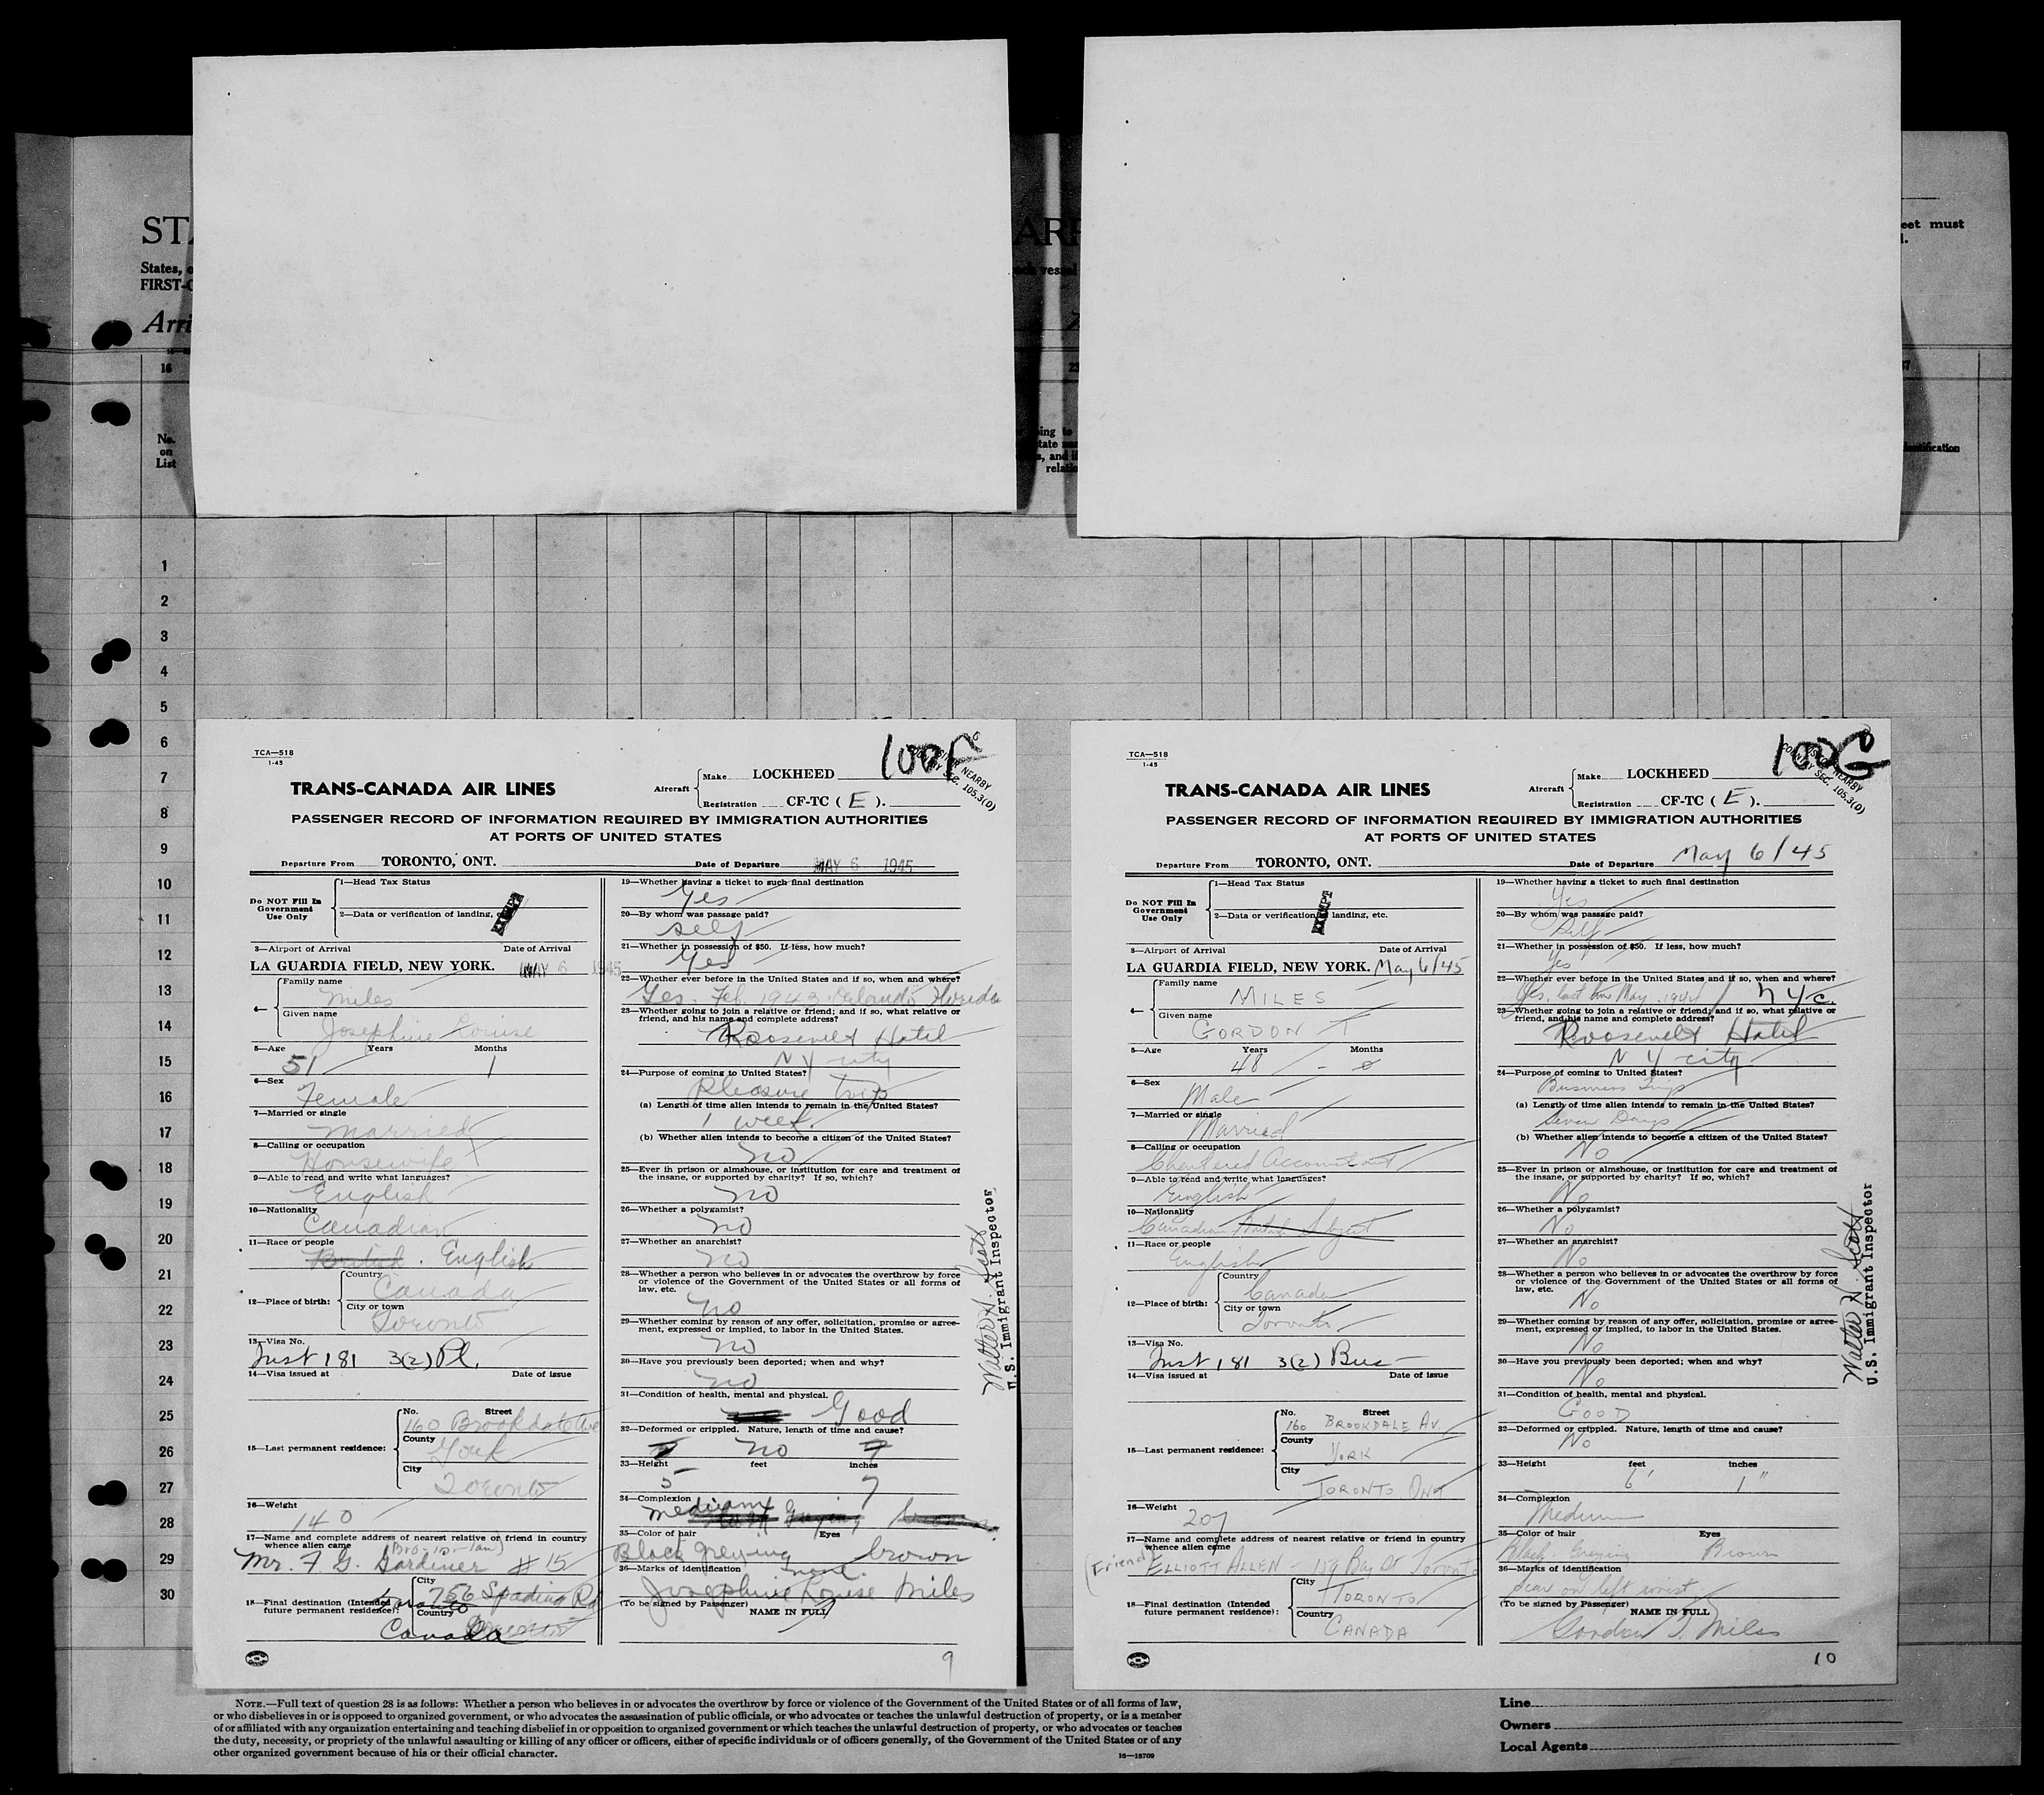 STA
ARR
eet must
States, o
ch vessel
FIRST-C
Arri
16
No.
on
List
ing to
tate
s, and if
relatio
identification
1
2
3
4
5
6
7
8
9
10
11
12
13
14
15
16
17
18
19
20
21
22
23
24
25
26
27
28
29
30
TCA—518
1-45
100F
TRANS-CANADA AIR LINES
Aircraft
Make LOCKHEED
Registration CF-TC ( E ).
NEARBY
SEC. 105.3(D)
PASSENGER RECORD OF INFORMATION REQUIRED BY IMMIGRATION AUTHORITIES
AT PORTS OF UNITED STATES
Departure From TORONTO, ONT. Date of Departure MAY 6 1945
Do NOT Fill In
Government
Use Only
1—Head Tax Status
2—Data or verification of landing,
EXEMPT
3—Airport of Arrival Date of Arrival
LA GUARDIA FIELD, NEW YORK. MAY 6 1945
4—
Family name
Miles
Given name
Josephine Louise
5—Age Years Months
51 1
6—Sex
Female
7—Married or single
Married
8—Calling or occupation
Housewife
9—Able to read and write what languages?
English
10—Nationality
Canadian
11—Race or people
British . English
12—Place of birth:
Country
Canada
City or town
Toronto
13—Visa No.
Inst 181 3(2) Pl.
14—Visa issued at Date of issue
15—Last permanent residence:
No. Street
160 Brookdale Ave
County
York
City
Toronto
16—Weight
140
17—Name and complete address of nearest relative or friend in country
whence alien came
(Bro-in-law)
Mr. F. G. Gardiner # 15
756 Spadina Rd
18—Final destination (Intended
future permanent residence):
City
Toronto
Country
Canada
19—Whether having a ticket to such final destination
Yes
20—By whom was passage paid?
self
21—Whether in possession of $50. If less, how much?
Yes
22—Whether ever before in the United States and if so, when and where?
Yes. Feb. 1943 Orlando Florida
23—Whether going to join a relative or friend; and if so, what relative or
friend, and his name and complete address?
Roosevelt Hotel
N Y city
24—Purpose of coming to United States?
Pleasure trip
(a) Length of time alien intends to remain in the United States?
1 week
(b) Whether alien intends to become a citizen of the United States?
no
25—Ever in prison or almshouse, or institution for care and treatment of
the insane, or supported by charity? If so, which?
no
26—Whether a polygamist?
no
27—Whether an anarchist?
no
28—Whether a person who believes in or advocates the overthrow by force
or violence of the Government of the United States or all forms of
law, etc.
no
29—Whether coming by reason of any offer, solicitation, promise or agree-
ment, expressed or implied, to labor in the United States.
no
30—Have you previously been deported; when and why?
no
31—Condition of health, mental and physical.
Good
32—Deformed or crippled. Nature, length of time and cause?
no
33—Height feet inches
5 7
34—Complexion
medium
35—Color of hair Eyes
Black greying brown
36—Marks of identification
Josephine Louise Miles
(To be signed by Passenger) NAME IN FULL
Walter N. Scott
U.S. Immigrant Inspector
9
TCA—518
1-45
100G
TRANS-CANADA AIR LINES
Aircraft
Make LOCKHEED
Registration CF-TC ( E ).
NEARBY
SEC. 105.3(D)
PASSENGER RECORD OF INFORMATION REQUIRED BY IMMIGRATION AUTHORITIES
AT PORTS OF UNITED STATES
Departure From TORONTO, ONT. Date of Departure May 6/45
Do NOT Fill In
Government
Use Only
1—Head Tax Status
2—Data or verification of landing, etc.
EXEMPT
3—Airport of Arrival Date of Arrival
LA GUARDIA FIELD, NEW YORK. May 6/45
4—
Family name
MILES
Given name
GORDON T
5—Age Years Months
48 - 0
6—Sex
Male
7—Married or single
Married
8—Calling or occupation
Chartered Accountant
9—Able to read and write what languages?
English
10—Nationality
Canadian British Subject
11—Race or people
English
12—Place of birth:
Country
Canada
City or town
Toronto
13—Visa No.
Inst 181 3(2) Bus
14—Visa issued at Date of issue
15—Last permanent residence:
No. Street
160 BROOKDALE AV.
County
YORK
City
TORONTO ONT
16—Weight
207
17—Name and complete address of nearest relative or friend in country
whence alien came
(Friend) ELLIOTT ALLEN - 159 Bay St Toronto
18—Final destination (Intended
future permanent residence):
City
TORONTO
Country
CANADA
19—Whether having a ticket to such final destination
Yes
20—By whom was passage paid?
Self
21—Whether in possession of $50. If less, how much?
Yes
22—Whether ever before in the United States and if so, when and where?
Yes, last time May 1944 N Y C.
23—Whether going to join a relative or friend; and if so, what relative or
friend, and his name and complete address?
Roosevelt Hotel
N Y city
24—Purpose of coming to United States?
Business Trip
(a) Length of time alien intends to remain in the United States?
Seven Days
(b) Whether alien intends to become a citizen of the United States?
No
25—Ever in prison or almshouse, or institution for care and treatment of
the insane, or supported by charity? If so, which?
No
26—Whether a polygamist?
No
27—Whether an anarchist?
No
28—Whether a person who believes in or advocates the overthrow by force
or violence of the Government of the United States or all forms of
law, etc.
No
29—Whether coming by reason of any offer, solicitation, promise or agree-
ment, expressed or implied, to labor in the United States.
No
30—Have you previously been deported; when and why?
No
31—Condition of health, mental and physical.
GOOD
32—Deformed or crippled. Nature, length of time and cause?
No
33—Height feet inches
6' 1"
34—Complexion
Medium
35—Color of hair Eyes
Black Greying Brown
36—Marks of identification
Scar on left wrist
(To be signed by Passenger) NAME IN FULL
Gordon T. Miles
Walter N. Scott
U.S. Immigrant Inspector
10
NOTE.—Full text of question 28 is as follows: Whether a person who believes in or advocates the overthrow by force or violence of the Government of the United States or of all forms of law,
or who disbelieves in or is opposed to organized government, or who advocates the assassination of public officials, or who advocates or teaches the unlawful destruction of property, or is a member
of or affiliated with any organization entertaining and teaching disbelief in or opposition to organized government or which teaches the unlawful destruction of property, or who advocates or teaches
the duty, necessity, or propriety of the unlawful assaulting or killing of any officer or officers, either of specific individuals or of officers generally, of the Government of the United States or of any
other organized government because of his or their official character.
16—18709
Line
Owners
Local Agents